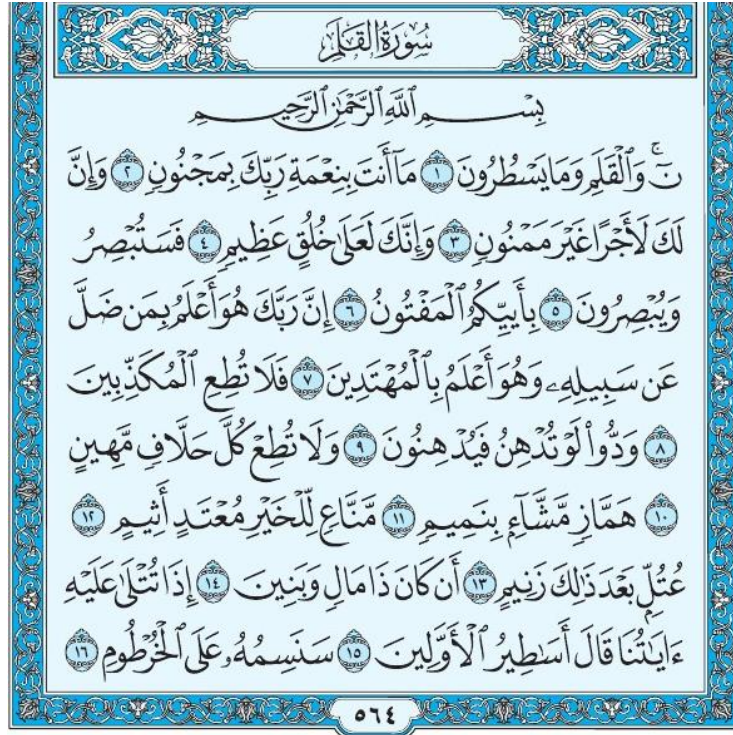 سُورَةُ القَلَمِ
بِسْمِ ٱللَّهِ ٱلرَّحْمَٰنِ ٱلرَّحِيمِ
نٓۚ وَٱلْقَلَمِ وَمَا يَسْطُرُونَ ١ مَآ أَنتَ بِنِعْمَةِ رَبِّكَ بِمَجْنُونٍ ٢ وَإِنَّ
لَكَ لَأَجْرًا غَيْرَ مَمْنُونٍ ٣ وَإِنَّكَ لَعَلَىٰ خُلُقٍ عَظِيمٍ ٤ فَسَتُبْصِرُ
وَيُبْصِرُونَ ٥ بِأَييِّكُمُ ٱلْمَفْتُونُ ٦ إِنَّ رَبَّكَ هُوَ أَعْلَمُ بِمَن ضَلَّ
عَن سَبِيلِهِۦ وَهُوَ أَعْلَمُ بِٱلْمُهْتَدِينَ ٧ فَلَا تُطِعِ ٱلْمُكَذِّبِينَ
٨ وَدُّوا۟ لَوْ تُدْهِنُ فَيُدْهِنُونَ ٩ وَلَا تُطِعْ كُلَّ حَلَّافٍ مَّهِينٍ
١٠ هَمَّازٍ مَّشَّآءٍۭ بِنَمِيمٍ ١١ مَّنَّاعٍ لِّلْخَيْرِ مُعْتَدٍ أَثِيمٍ ١٢
عُتُلٍّۭ بَعْدَ ذَٰلِكَ زَنِيمٍ ١٣ أَن كَانَ ذَا مَالٍ وَبَنِينَ ١٤ إِذَا تُتْلَىٰ عَلَيْهِ
ءَايَٰتُنَا قَالَ أَسَٰطِيرُ ٱلْأَوَّلِينَ ١٥ سَنَسِمُهُۥ عَلَى ٱلْخُرْطُومِ ١٦
٥٦٤